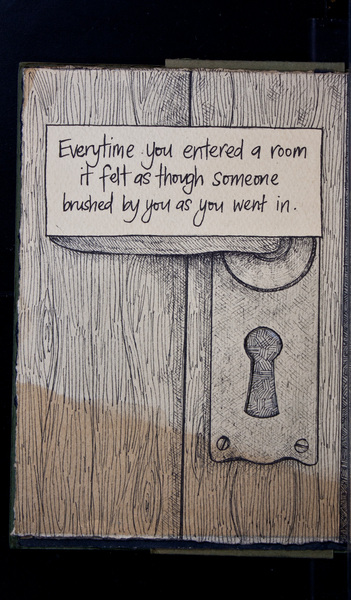 Everytime you entered a room
it felt as though someone
brushed by you as you went in.